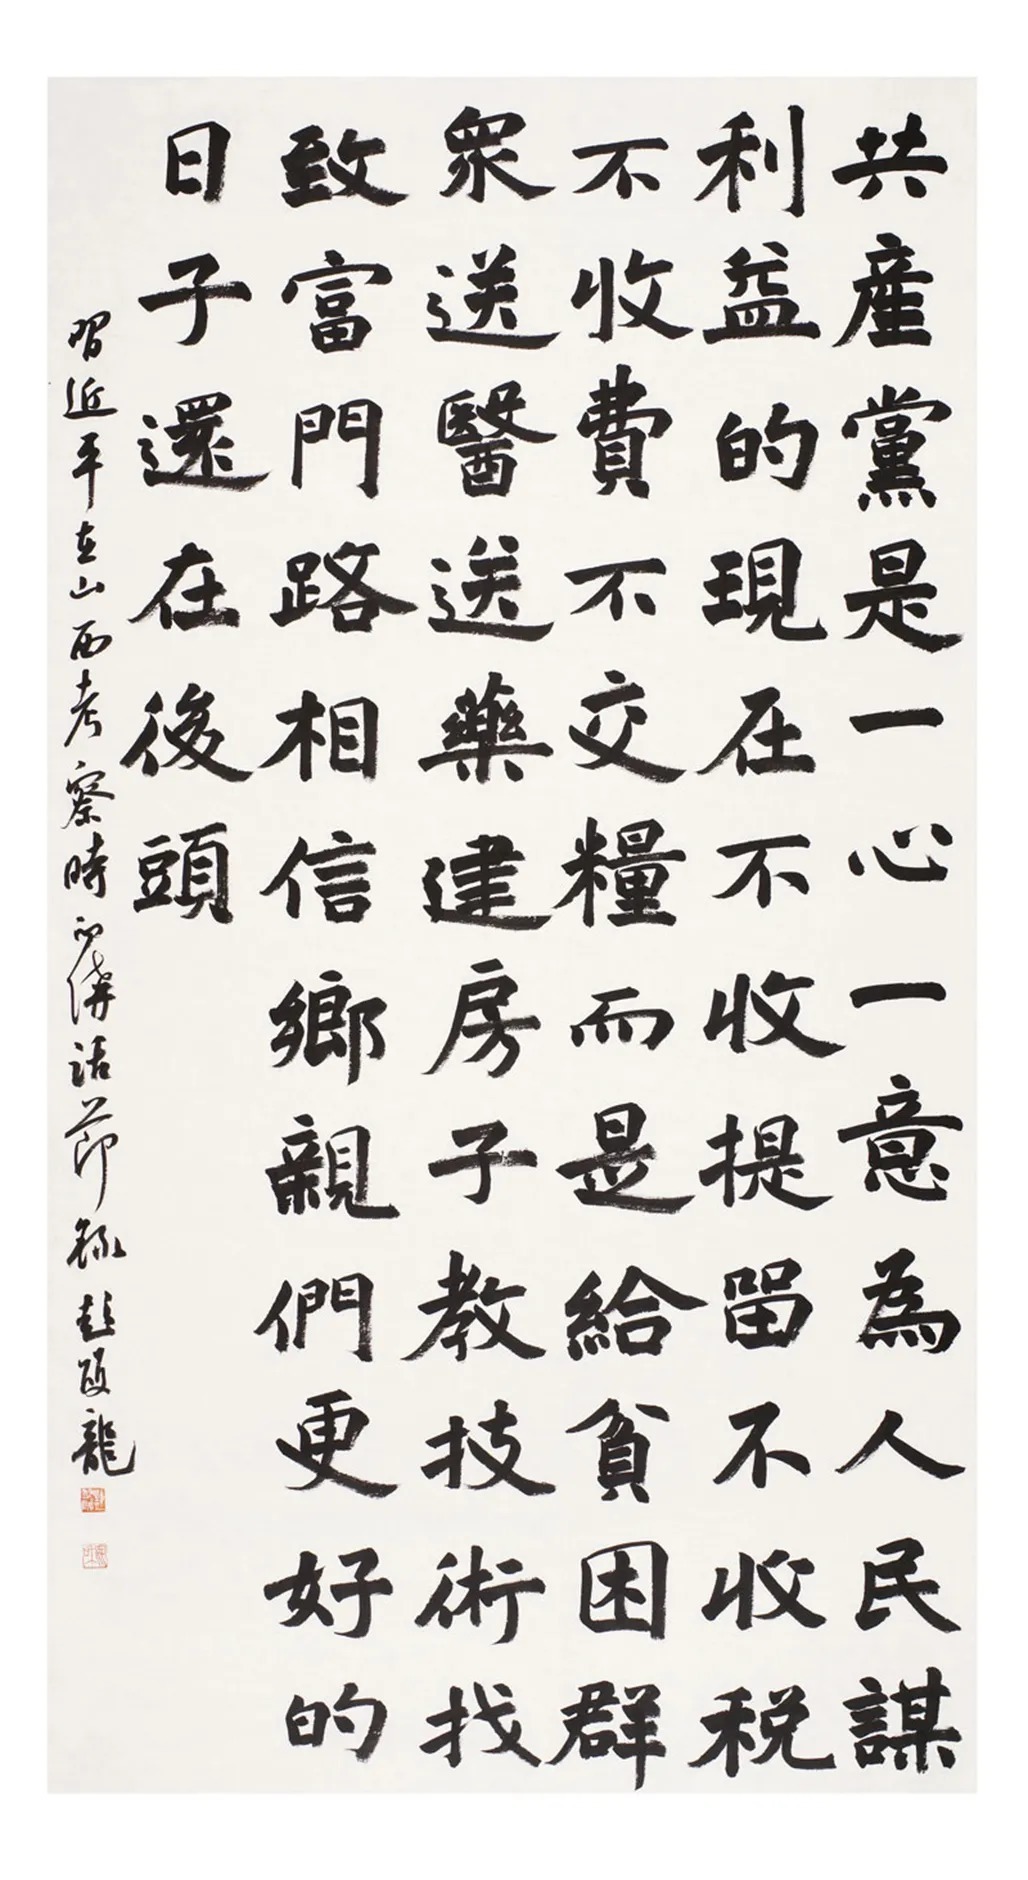 共產黨是一心一意為人民謀
利益的現在不收提留不收税
不收費不交糧而是給貧困群
衆送醫送藥建房子教技術找
致富門路相信鄉親們更好的
日子還在後頭
習近平在山西考察時的講話節錄 彭
龍